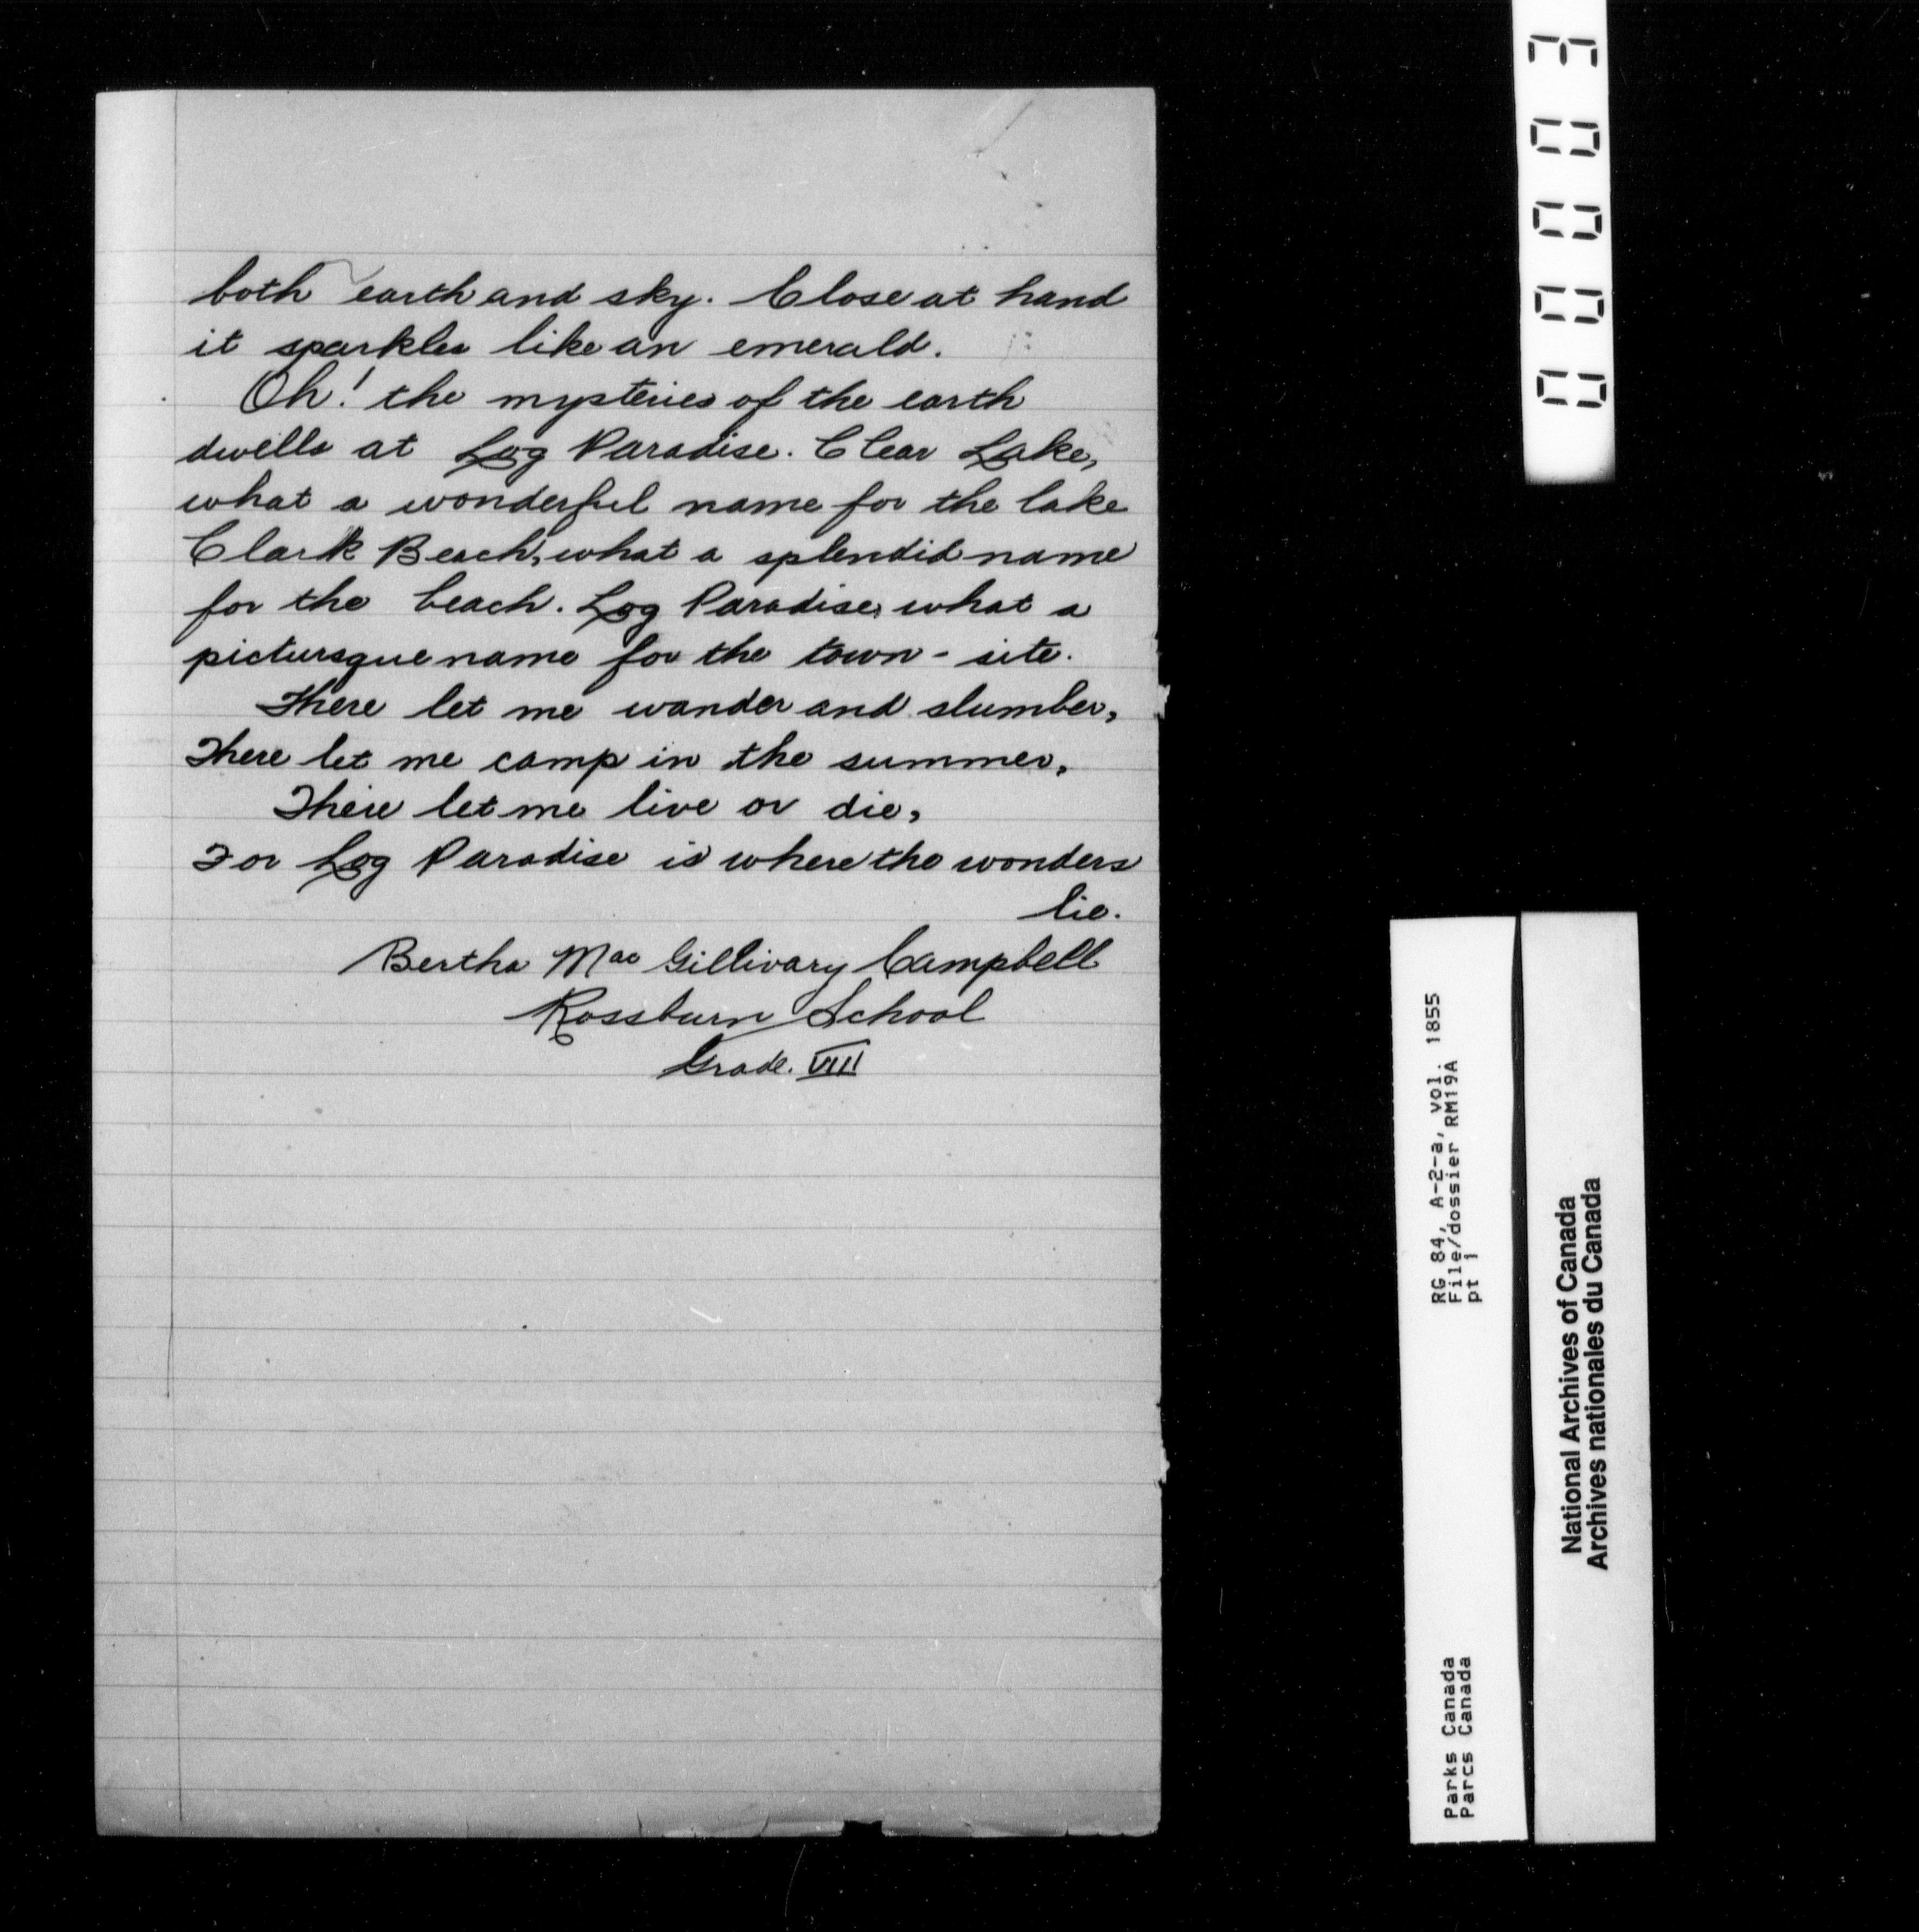 both earth and sky. Close at hand
it sparkles like an emerald.
Oh! the mysteries of the earth
dwells at Log Paradise. Clear Lake,
what a wonderful name for the lake
Clark Beach, what a splendid name
for the beach. Log Paradise, what a
pictursque name for the town-site.
There let me wander and slumber,
There let me camp in the summer,
There let me live or die,
For Log Paradise is where the wonders
lie.
Bertha Mac Gillivary Campbell
Rossburn School
Grade. VIII
00003
RG 84, A-2-a, vol. 1855
File/dossier RM19A
pt 1
Parks Canada
Parcs Canada
National Archives of Canada
Archives nationales du Canada